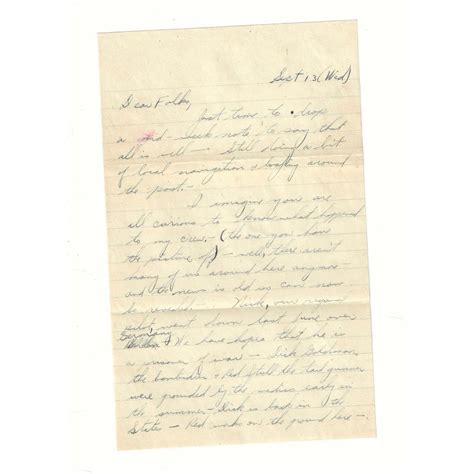 Sept 13 (Wed)
Dear Folks,
Just time to drop
a mid-week note to say that
all is well - Still doing a bit
of local navigation & loafing around
the post.
I imagine you are
all curious to know what happened
to my crew - (the one you have
the picture of) - well, there aren't
many of us around here anymore
and the news is old so can now
be revealed. our
pilot, went down last June over
Germany
We have hopes that he is
a prisoner of war - Dick
the bombardier & Red the tail gunner
were grounded by the medics early in
the summer - Dick is back in the
States - Red works on the ground here -